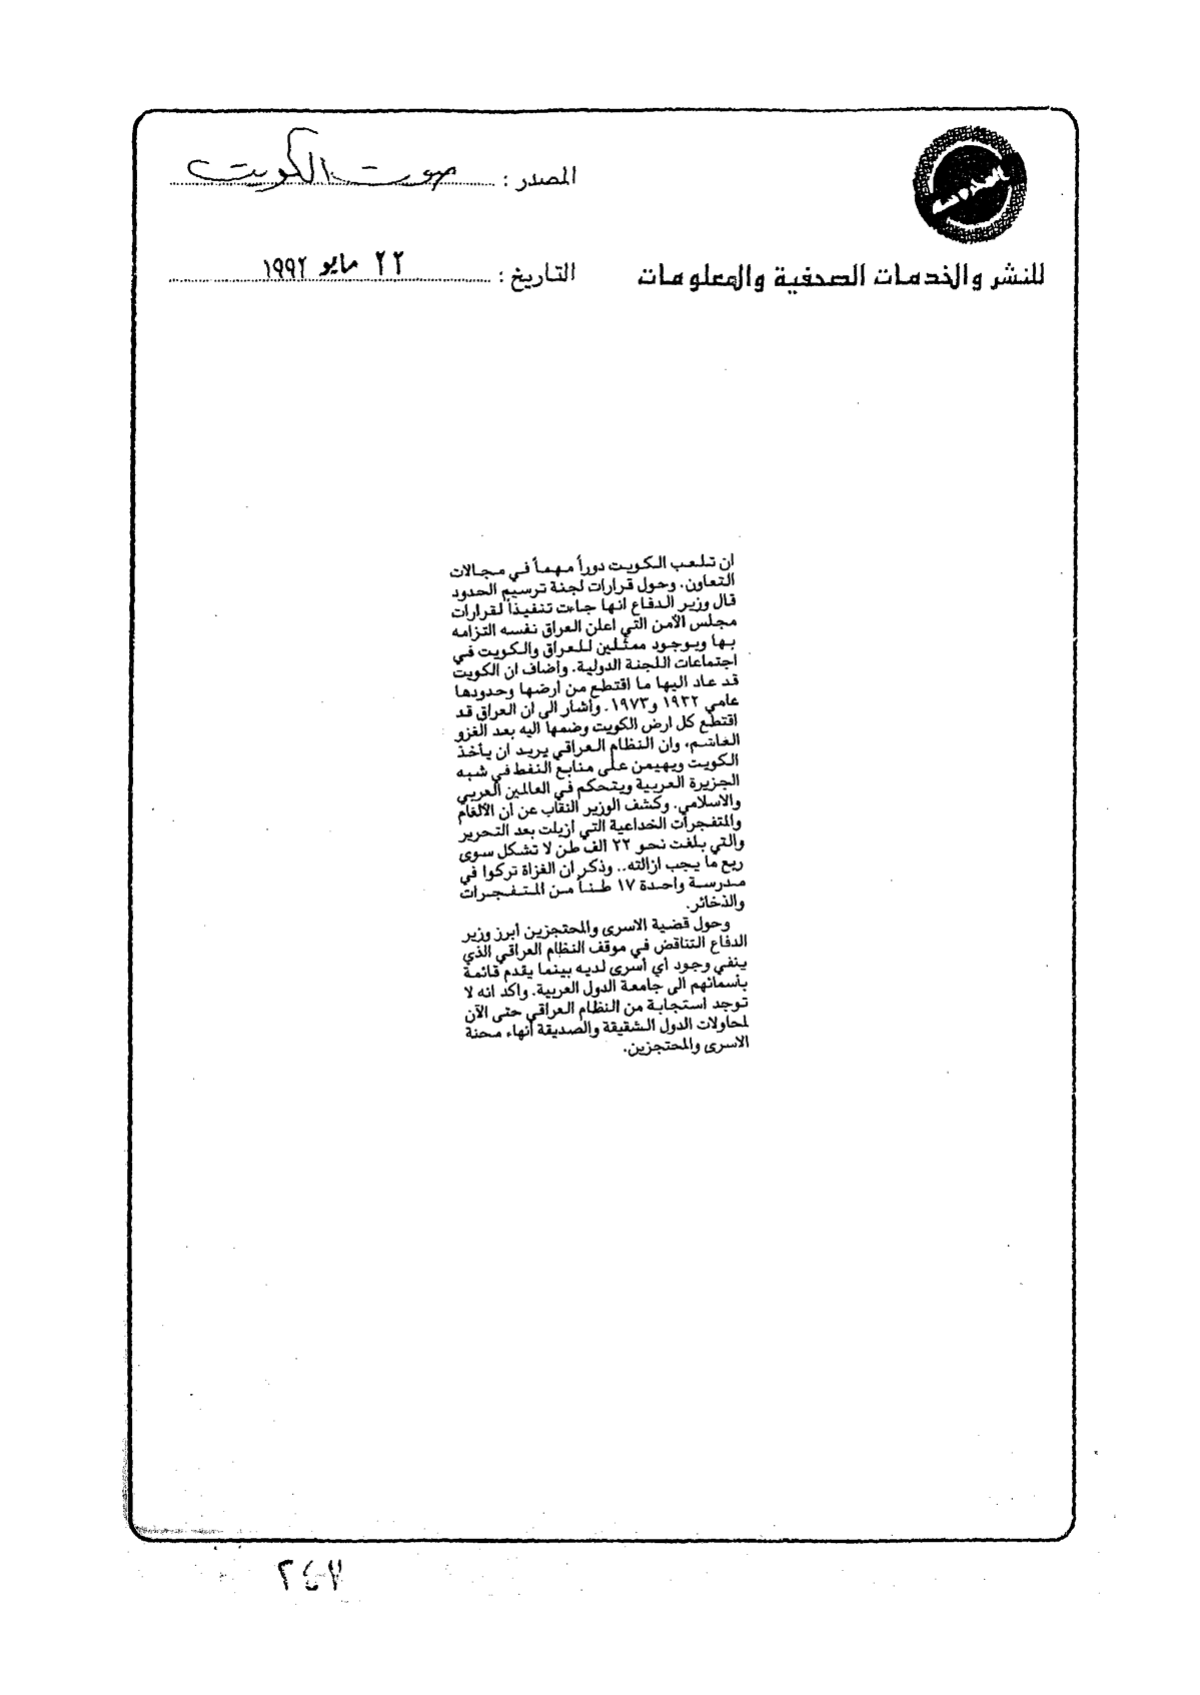 المصدر : صوت الكويت
للنشر والخدمات الصحفية والمعلومات
التاريخ : ٢٢ مايو ١٩٩٢
ان تلعب الكويت دوراً مهماً في مجالات
التعاون. وحول قرارات لجنة ترسيم الحدود
قال وزير الدفاع انها جاءت تنفيذاً لقرارات
مجلس الأمن التي اعلن العراق نفسه التزامه
بها وبوجود ممثلين للعراق والكويت في
اجتماعات اللجنة الدولية. واضاف ان الكويت
قد عاد اليها ما اقتطع من ارضها وحدودها
عامي ١٩٣٢ و١٩٧٣. واشار الى ان العراق قد
اقتطع كل ارض الكويت وضمها اليه بعد الغزو
الغاشم، وان النظام العراقي يريد ان يأخذ
الكويت ويهيمن على منابع النفط في شبه
الجزيرة العربية ويتحكم في العالمين العربي
والاسلامي. وكشف الوزير النقاب عن ان الألغام
والمتفجرات الخداعية التي أزيلت بعد التحرير
والتي بلغت نحو ٢٢ الف طن لا تشكل سوى
ربع ما يجب ازالته.. وذكر أن الغزاة تركوا في
مدرسة واحدة ١٧ طناً من المتفجرات
والذخائر.
وحول قضية الاسرى والمحتجزين أبرز وزير
الدفاع التناقض في موقف النظام العراقي الذي
ينفي وجود أي أسرى لديه بينما يقدم قائمة
بأسمائهم الى جامعة الدول العربية. واكد انه لا
توجد استجابة من النظام العراقي حتى الآن
لمحاولات الدول الشقيقة والصديقة أنهاء محنة
الاسرى والمحتجزين.
٢٤٧